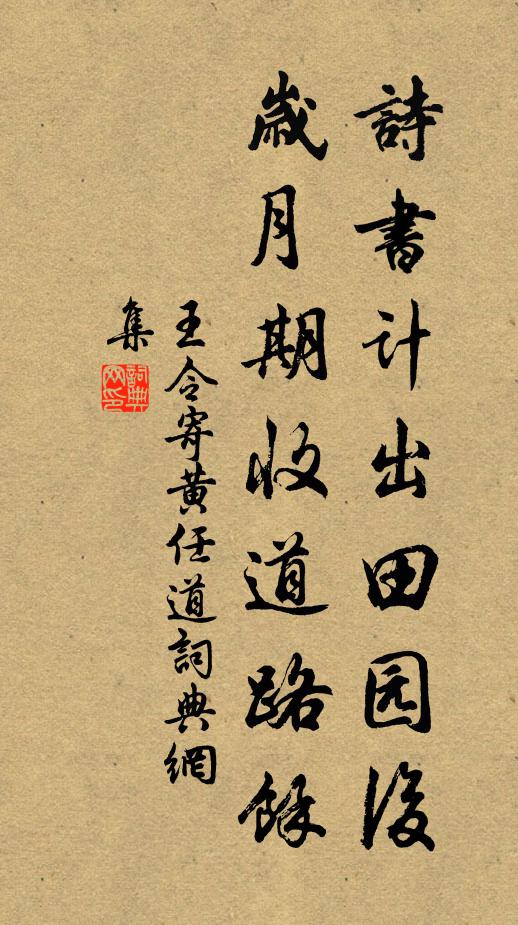 詩書計出田园後
歲月期收道路餘
王令寄黄任道詞典網
集
詞典网印